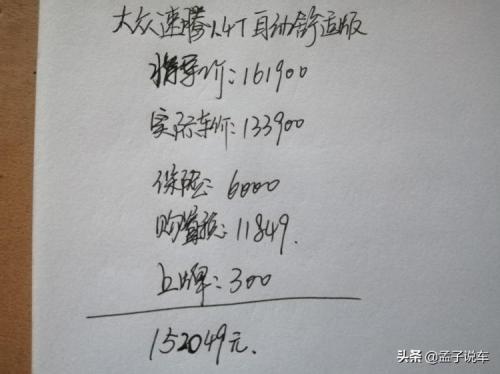 大众速腾1.4T自动舒适版
指导价：161900
实际车价：133900
保险：6000
购置税：11849.
上牌：300
152049元.
头条 @孟子说车